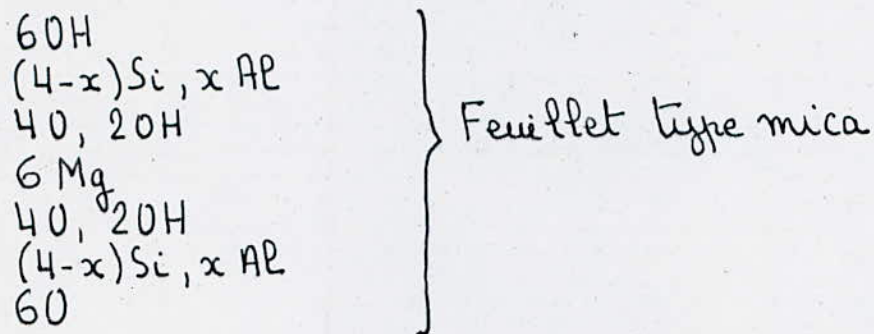 6OH
(4-x)Si, x Al
4O, 2OH
6 Mg
4O, 2OH
(4-x)Si, x Al
6O
Feuillet type mica